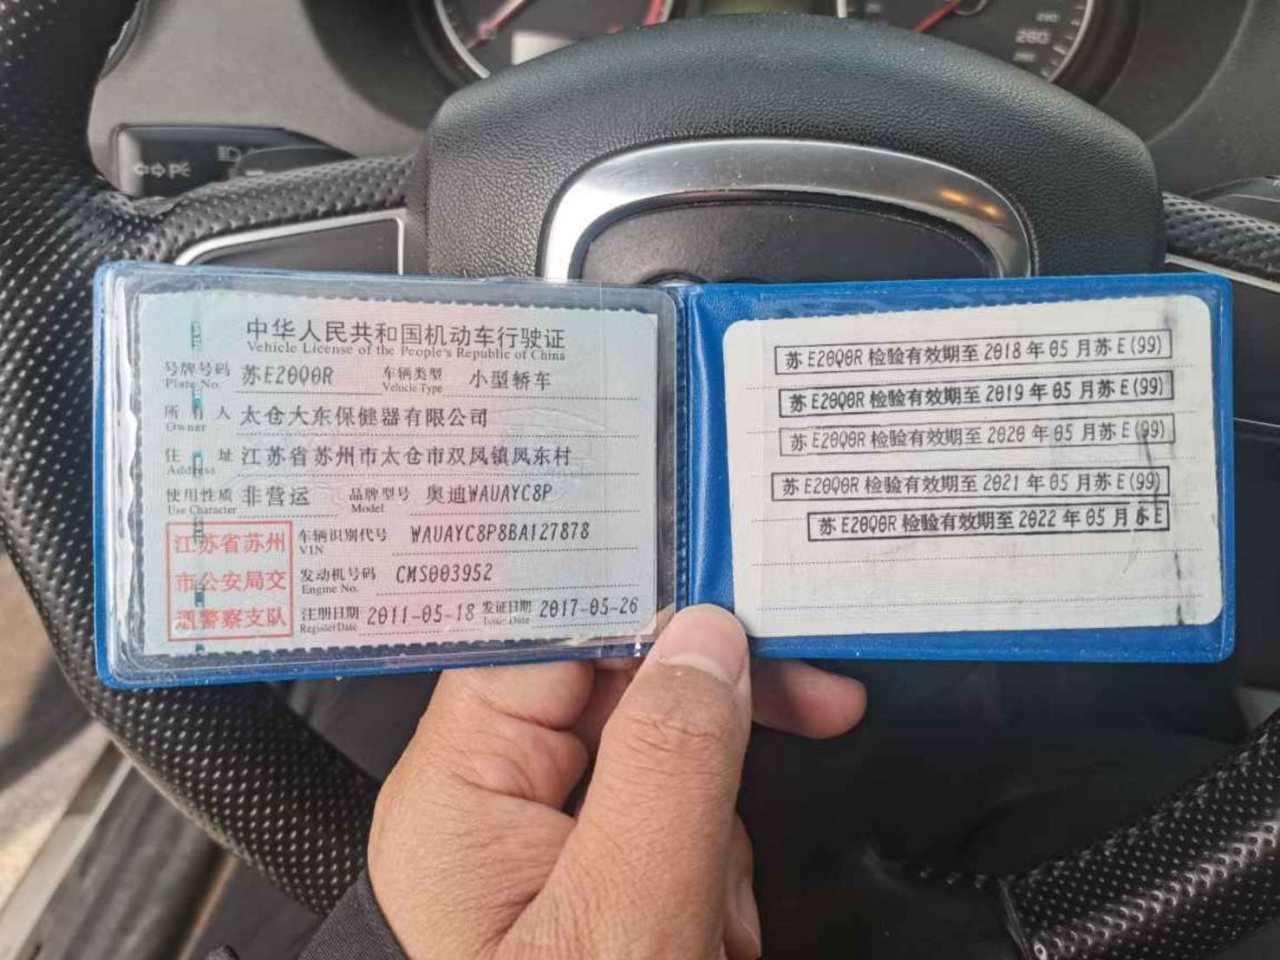 260
中华人民共和国机动车行驶证
Vehicle License of the People's Republic of China
号牌号码 苏E20Q0R 车辆类型 小型轿车
Plate No. Vehicle Type
所有人 太仓大东保健器有限公司
Owner
住址 江苏省苏州市太仓市双凤镇凤东村
Address
使用性质 非营运 品牌型号 奥迪WAUAYC8P
Use Character Model
江苏省苏州
市公安局交
通警察支队
车辆识别代号 WAUAYC8P8BA127878
VIN
发动机号码 CMS003952
Engine No.
注册日期 2011-05-18 发证日期 2017-05-26
Register Date Issue Date
苏E20Q0R检验有效期至2018年05月苏E(99)
苏E20Q0R检验有效期至2019年05月苏E(99)
苏E20Q0R检验有效期至2020年05月苏E(99)
苏E20Q0R检验有效期至2021年05月苏E(99)
苏E20Q0R检验有效期至2022年05月苏E